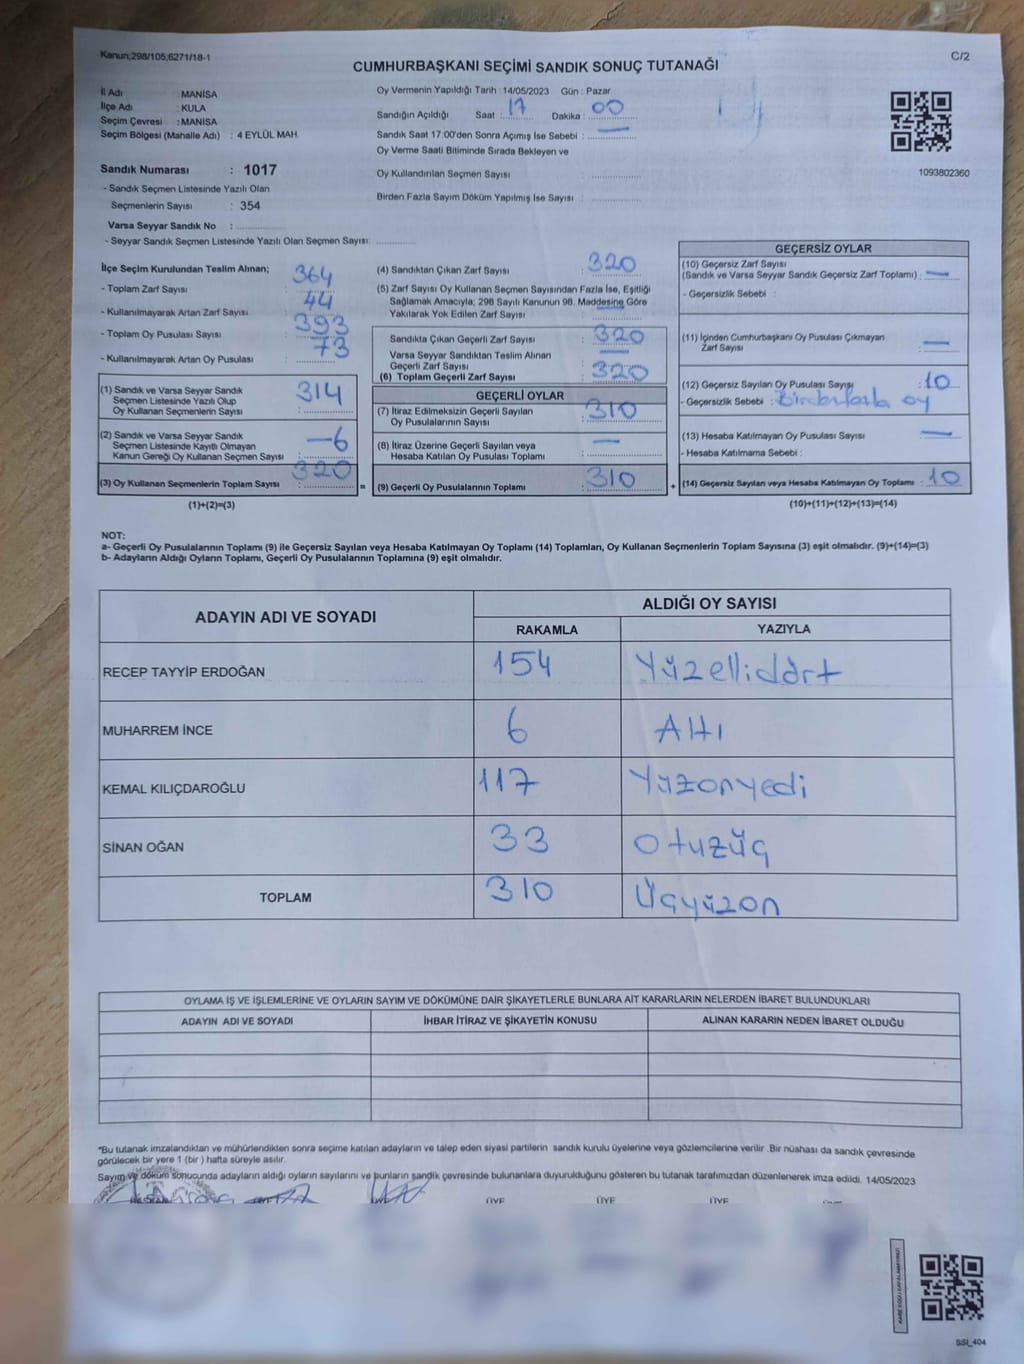 Kanun;298/105,6271/18-1
C/2
CUMHURBAŞKANI SEÇİMİ SANDIK SONUÇ TUTANAĞI
İl Adı : MANİSA
İlçe Adı : KULA
Seçim Çevresi : MANİSA
Seçim Bölgesi (Mahalle Adı) : 4 EYLÜL MAH.
Sandık Numarası : 1017
- Sandık Seçmen Listesinde Yazılı Olan
Seçmenlerin Sayısı : 354
Varsa Seyyar Sandık No :
- Seyyar Sandık Seçmen Listesinde Yazılı Olan Seçmen Sayısı:
Oy Vermenin Yapıldığı Tarih : 14/05/2023 Gün : Pazar
Sandığın Açıldığı Saat : 17 Dakika : 00
Sandık Saat 17:00'den Sonra Açımış İse Sebebi : —
Oy Verme Saati Bitiminde Sırada Bekleyen ve
Oy Kullandırılan Seçmen Sayısı :
Birden Fazla Sayım Döküm Yapılmış İse Sayısı :
1093802360
İlçe Seçim Kurulundan Teslim Alınan;
- Toplam Zarf Sayısı : 364
- Kullanılmayarak Artan Zarf Sayısı : 44
- Toplam Oy Pusulası Sayısı : 393
- Kullanılmayarak Artan Oy Pusulası : 73
(1) Sandık ve Varsa Seyyar Sandık
Seçmen Listesinde Yazılı Olup
Oy Kullanan Seçmenlerin Sayısı : 314
(2) Sandık ve Varsa Seyyar Sandık
Seçmen Listesinde Kayıtlı Olmayan
Kanun Gereği Oy Kullanan Seçmen Sayısı : —6
(3) Oy Kullanan Seçmenlerin Toplam Sayısı : 320 =
(1)+(2)=(3)
(4) Sandıktan Çıkan Zarf Sayısı : 320
(5) Zarf Sayısı Oy Kullanan Seçmen Sayısından Fazla İse, Eşitliği
Sağlamak Amacıyla; 298 Sayılı Kanunun 98. Maddesine Göre
Yakılarak Yok Edilen Zarf Sayısı : —
Sandıkta Çıkan Geçerli Zarf Sayısı : 320
Varsa Seyyar Sandıktan Teslim Alınan
Geçerli Zarf Sayısı : —
(6) Toplam Geçerli Zarf Sayısı : 320
GEÇERLİ OYLAR
(7) İtiraz Edilmeksizin Geçerli Sayılan
Oy Pusulalarının Sayısı : 310
(8) İtiraz Üzerine Geçerli Sayılan veya
Hesaba Katılan Oy Pusulası Toplamı : —
(9) Geçerli Oy Pusulalarının Toplamı : 310 +
GEÇERSİZ OYLAR
(10) Geçersiz Zarf Sayısı
(Sandık ve Varsa Seyyar Sandık Geçersiz Zarf Toplamı) : —
- Geçersizlik Sebebi :
(11) İçinden Cumhurbaşkanı Oy Pusulası Çıkmayan
Zarf Sayısı : —
(12) Geçersiz Sayılan Oy Pusulası Sayısı : 10
- Geçersizlik Sebebi : Birden fazla oy
(13) Hesaba Katılmayan Oy Pusulası Sayısı : —
- Hesaba Katılmama Sebebi :
(14) Geçersiz Sayılan veya Hesaba Katılmayan Oy Toplamı : 10
(10)+(11)+(12)+(13)=(14)
NOT:
a- Geçerli Oy Pusulalarının Toplamı (9) ile Geçersiz Sayılan veya Hesaba Katılmayan Oy Toplamı (14) Toplamları, Oy Kullanan Seçmenlerin Toplam Sayısına (3) eşit olmalıdır. (9)+(14)=(3)
b- Adayların Aldığı Oyların Toplamı, Geçerli Oy Pusulalarının Toplamına (9) eşit olmalıdır.
ADAYIN ADI VE SOYADI ALDIĞI OY SAYISI
RAKAMLA YAZIYLA
RECEP TAYYİP ERDOĞAN 154 Yüzellidört
MUHARREM İNCE 6 Altı
KEMAL KILIÇDAROĞLU 117 Yüzonyedi
SİNAN OĞAN 33 Otuzüç
TOPLAM 310 Üçyüzon
OYLAMA İŞ VE İŞLEMLERİNE VE OYLARIN SAYIM VE DÖKÜMÜNE DAİR ŞİKAYETLERLE BUNLARA AİT KARARLARIN NELERDEN İBARET BULUNDUKLARI
ADAYIN ADI VE SOYADI İHBAR İTİRAZ VE ŞİKAYETİN KONUSU ALINAN KARARIN NEDEN İBARET OLDUĞU
*Bu tutanak imzalandıktan ve mühürlendikten sonra seçime katılan adayların ve talep eden siyasi partilerin sandık kurulu üyelerine veya gözlemcilerine verilir. Bir nüshası da sandık çevresinde
görülecek bir yere 1 (bir ) hafta süreyle asılır.
Sayım ve döküm sonucunda adayların aldığı oyların sayılarını ve bunların sandık çevresinde bulunanlara duyurulduğunu gösteren bu tutanak tarafımızdan düzenlenerek imza edildi. 14/05/2023
ÜYE ÜYE ÜYE
SSİ_404